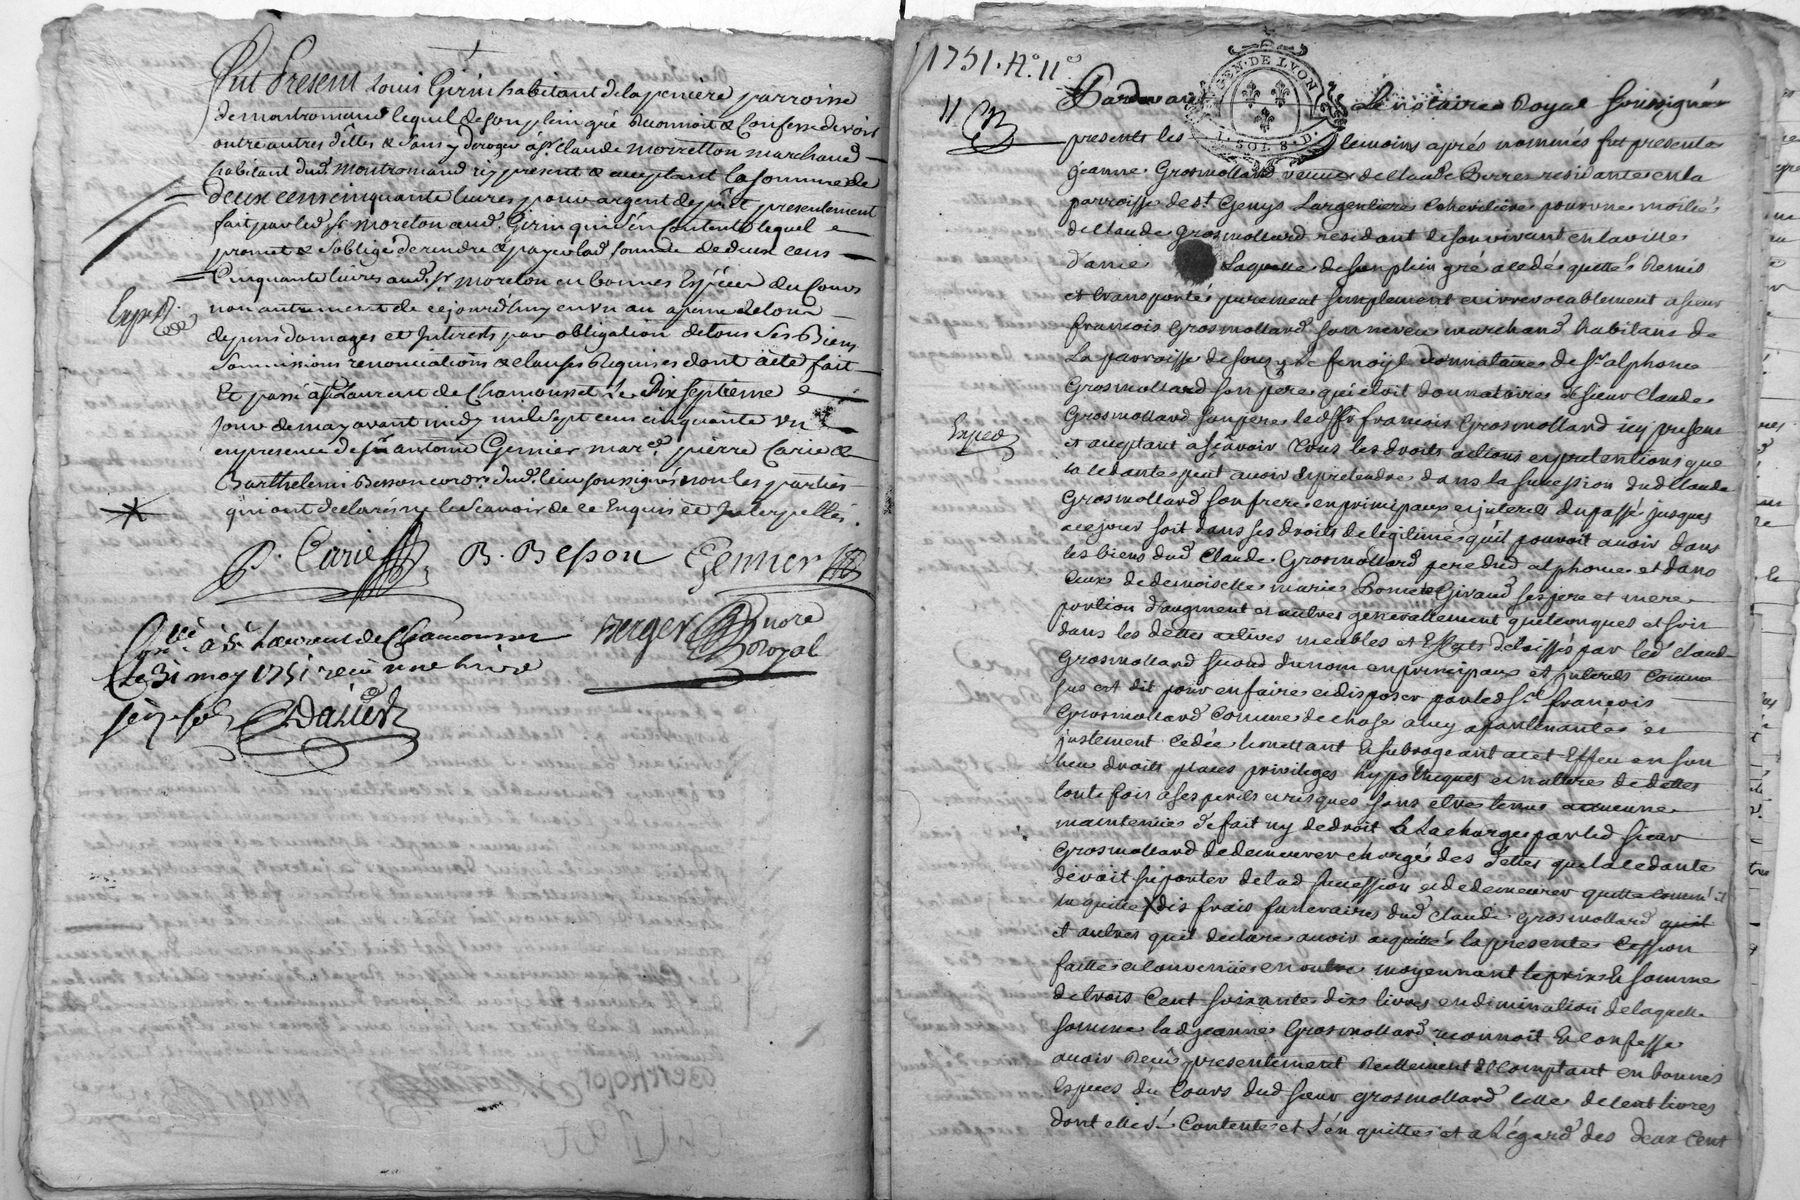 Fut Present Louis Girin habitant de la periere parroisse
de montromand lequel de son plein gré Reconnoit & Confesse devoir
outre autres dettes & sans y deroger à sr. Claude morretton marchand
habitant dud. montromand icy present & acceptant la somme de
deux cens cinquante livres pour argent de prêt presentement
fait par led. sr. moreton aud. Girin qui s'en contente lequel
promet & s'oblige de rendre & payer lad. somme de deux cens
Cinquante livres aud. sr. moreton en bonnes Espéces du Cours
non autrement de ce jourd'huy en un an a peine de tous
depens domages et Interests par obligation de tous ses Biens
Soumissions renonciations & clauses Requises dont acte fait
Et passé à st. Laurent de Chamousset Le Dix septieme
jour de may avant midy mil sept cens cinquante un
en presence de sr. antoine Gennier march. pierre Carie &
Barthelemi Besson cord. dud. lieu soussignés non les parties
qui ont declarés ne le sçavoir de ce Enquis et Interpellés.
Exped.
P. Carie B. Besson Gennier
Berger nore Royal
Con.llé à St. Laurent de Chamousset
Le 31 may 1751 reçu une livre
seize sols Dalier
1751. N.° 11.e
GEN. DE LYON
1. SOL 8. D.
11
Pardevant Le notaire Royal soussigné
presents les temoins aprés nommés fut presente
jeanne Grosmollard veuve de Claude Berre residante en la
parroisse de st. Genys Largentiere coheritiere pour une moitié
de Claude Grosmollard residant de son vivant en la ville
d'anse Laquelle de son plein gré a cedé quitté Remis
et transporté purement simplement et irrevocablement a sieur
francois Grosmollard son neveu marchand habitant de
La parroisse de souzy de fenoyl donnataire de sr. alphonse
Grosmollard son pere qui étoit donnataire de sieur Claude
Grosmollard son pere led. sr. francois Grosmollard icy present
et acceptant à sçavoir tous les droits actions et pretentions que
la cedante peut avoir & pretendre dans la succession dud. Claude
Grosmollard son frere en principaux et interets du passé jusques
a ce jour soit dans ses droits de legitime qu'il pouvoit avoir dans
les biens dud. Claude Grosmollard pere dud. alphonse et dans
Ceux de demoiselle marie Giraud ses pere et mere
portion d'augment et autres generallement quelconques et soit
dans les dettes actives meubles et Effets délaissés par led. Claude
Grosmollard second du nom en principaux et interets Comme
sus est dit pour en faire et disposer par led. sr. françois
Grosmollard Comme de chose a luy apartenante et
justement Cedée le mettant & subrogeant a cet Effet en son
lieu droits places privileges hypotheques et nature de dettes
toute fois a ses perils et risques sans estre tenue aucune
maintenue de fait ny de droit & a la charge par led. sieur
Grosmollard de demeurer chargé des dettes que la cedante
devoit suporter de lad. succession et de demeurer quitte comme il
en quitte des frais funeraires dud. Claude Grosmollard
et autres qu'il declare avoir acquittés la presente Cession
faitte et Convenüe en outre moyennant le prix & somme
de trois Cent soixante dix livres en diminution de laquelle
somme lad. jeanne Grosmollard reconnoit & confesse
avoir Reçu presentement Reellement & Comptant en bonnes
Espéces du Cours dud. sieur Grosmollard celle de cent livres
dont elle s'est Contente et l'en quitte et a l'égard des deux cent
Exped.